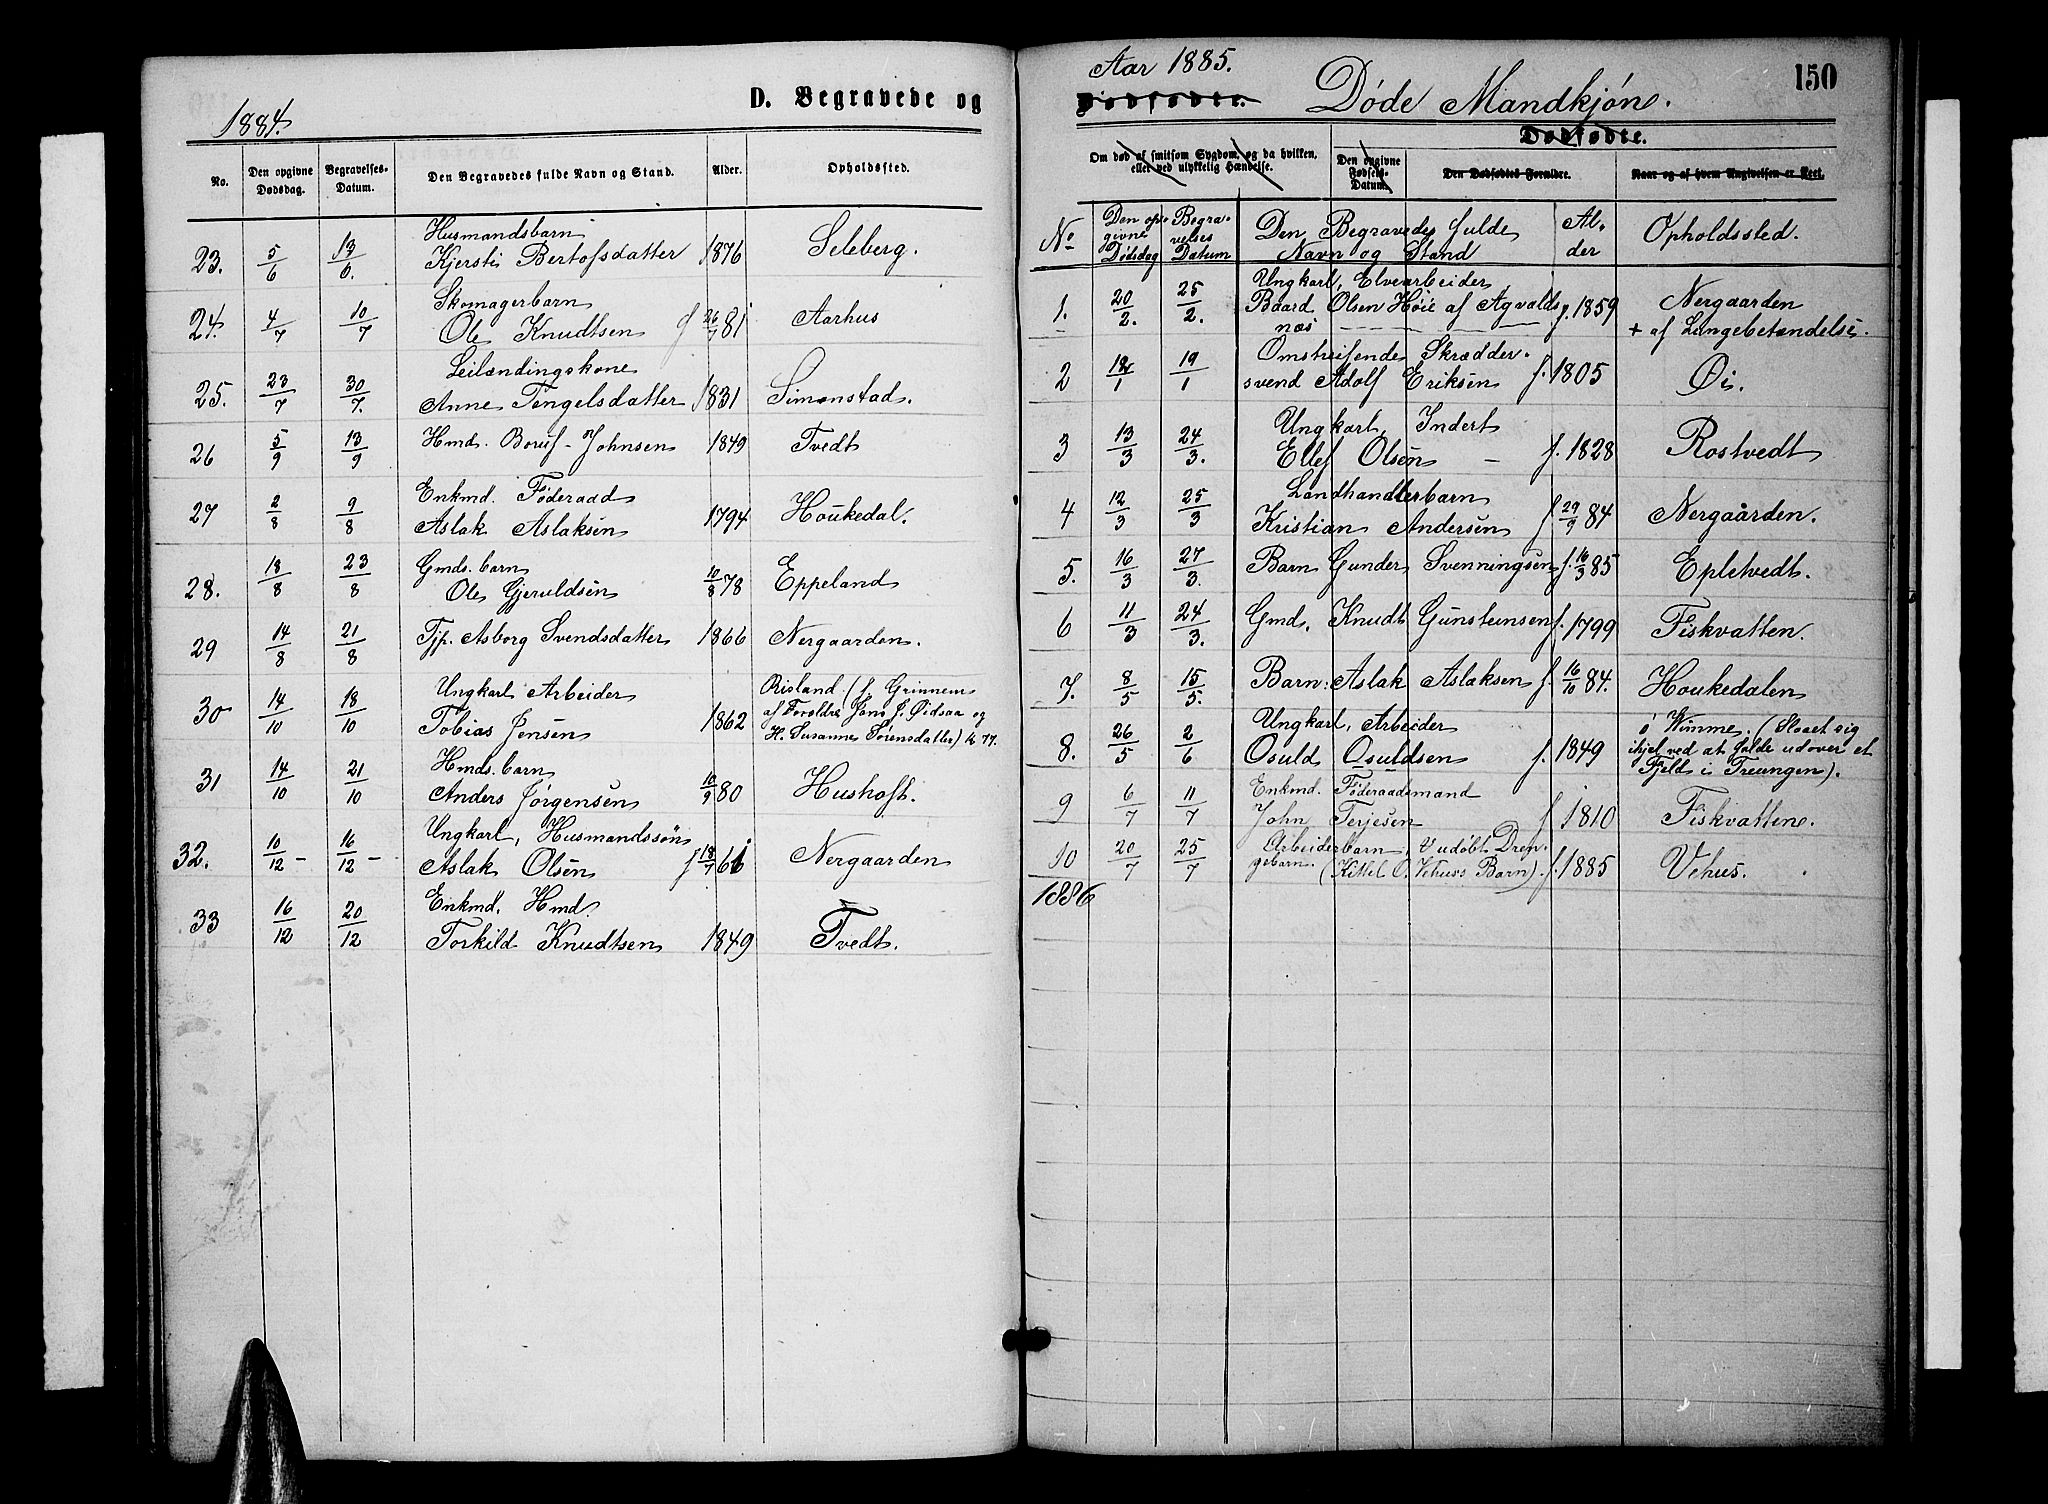 1884.
D. Begravede og
No.
Den opgivne Dødsdag.
Begravelses-Datum.
Den Begravedes fulde Navn og Stand.
Alder.
Opholdssted.
23. 5/6 13/6. Husmandsbarn
Kjersti Bertofsdatter 1876 Seleberg.
24. 4/7 10/7 Skomagerbarn
Ole Knudtsen f 26/7 81 Aarhus
25. 23/7 30/7. Leilændingskone
Anne Tengelsdatter 1831 Simonstad.
26 5/9 13/9 Hmd. Boruf Johnsen 1849 Tvedt
27 2/8 9/8 Enkmd. Føderaad
Aslak Aslaksen 1794 Houkedal.
28. 18/8 23/8 Gmds. barn
Ole Gjeruldsen 10/8 78 Eppeland
29 14/8 21/8 Tjp. Asborg Svendsdatter 1866 Nergaarden.
30 14/10 18/10 Ungkarl Arbeider
Tobias Jensen 1862 Risland. (f. Grinnem
af Forældre Jens J. Øidsaa og
H. Susanne Sørensdatter)
31 14/10 21/10 Hmds. barn
Anders Jørgensen 10/9 80 Hushoft.
32. 10/12 - 16/12 - Ungkarl, Husmandssøn
Aslak Olsen f 18/7 61 Nergaarden
33 16/12 20/12 Enkmd. Hmd.
Torkild Knudtsen 1849 Tvedt.
Aar 1885.
Dødfødte. Døde Mandkjøn.
150
Dødfødte.
Om død af smitsom Sygdom, og da hvilken,
eller ved ulykkelig Hændelse.
Den opgivne Fødsels-Datum.
Den Dødfødtes Forældre.
Naar og af hvem Angivelsen er skeet.
No
Den opgivne Dødsdag
Begravelses Datum
Den Begravedes fulde
Navn og Stand
Alder
Opholdssted.
1. 20/2. 25/2. Ungkarl, Elvearbeider
Baard Olsen Høie af Agvalds f. 1859 Nergaarden
næs + af Lungebetændelse.
2 12/1 19/1 Omstreifende Skrædder-
svend Adolf Eriksen f. 1805 Øi.
3 13/3 24/3. Ungkarl Inderst
Ellef Olsen - f. 1828 Rostvedt
4 12/3 25/3 Landhandlerbarn
Kristian Andersen f 29/9 84 Nergaarden.
5. 16/3 27/3. Barn Gunder Svenningsen f. 16/3 85 Epletvedt.
6 11/3 24/3. Gmd. Knudt Gunsteinsen f. 1799 Fiskvatten.
7. 8/5 15/5. Barn: Aslak Aslaksen f. 16/10 84. Houkedalen
8. 26/5 2/6 Ungkarl, Arbeider
Osuld Osuldsen f. 1849 ó Wimme. (Slaaet sig
ihjel ved at falde udover et
Fjeld i Treungen).
9 6/7 11/7 Enkmd. Føderaadsmand
John Terjesen f 1810 Fiskvattene.
10 20/7 25/7 Arbeiderbarn, Uudøbt Dren-
gebarn. (Kittel O. Vehuss Barn). f. 1885 Vehus.
1886